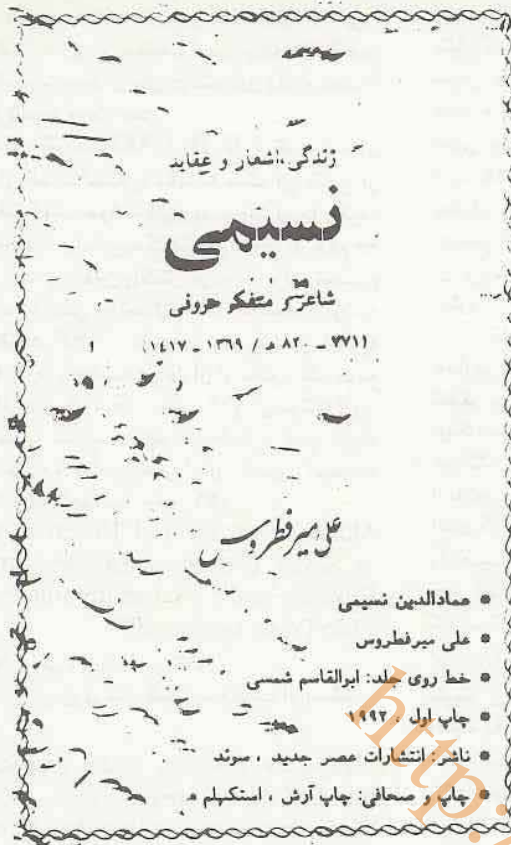 زندگی، اشعار و عقاید
نسیمی
شاعر و متفکر حروفی
(۷۷۱ ــ ۸۲۰ ه‍ / ۱۳۶۹ ــ ۱۴۱۷)
علی میرفطروس
● عمادالدین نسیمی
● علی میرفطروس
● خط روی جلد: ابوالقاسم شمسی
● چاپ اول ، ۱۹۹۲
● ناشر: انتشارات عصر جدید ، سوئد
● چاپ و صحافی: چاپ آرش ، استکهلم
http: